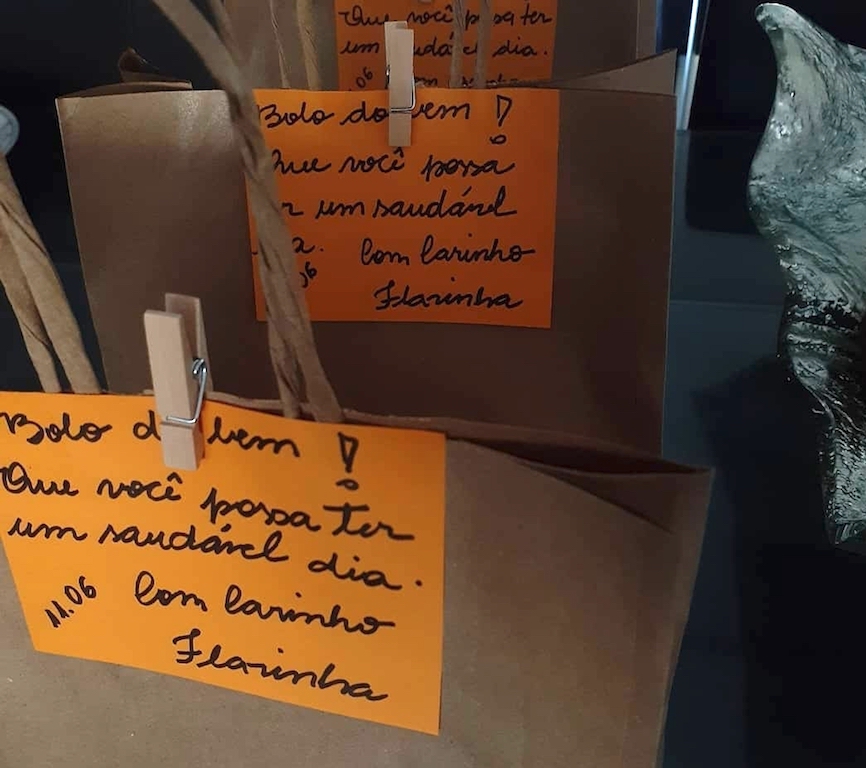 Que você possa ter
um saudável dia.
06
Bolo do bem!
Que você possa
um saudável
Com Carinho
06
Flarinha
Bolo do bem!
Que você possa Ter
um saudável dia.
11.06 Com Carinho
Flarinha